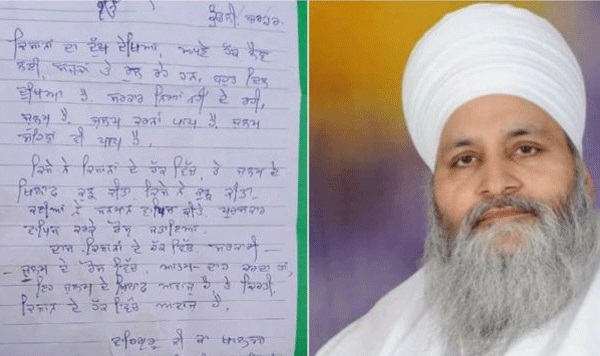 ੴ
ਕੁੰਡਲੀ, ਬਾਰਡਰ.
ਕਿਸਾਨਾਂ ਦਾ ਦੁੱਖ ਦੇਖਿਆ, ਆਪਣੇ ਹੱਕ ਲੈਣ
ਲਈ, ਸੜਕਾਂ ਤੇ ਰੁਲ ਰਹੇ ਹਨ, ਬਹੁਤ ਦਿਲ
ਦੁਖਿਆ ਹੈ. ਸਰਕਾਰ ਨਿਆਂ ਨਹੀਂ ਦੇ ਰਹੀ,
ਜੁਲਮ ਹੈ. ਜੁਲਮ ਕਰਨਾ ਪਾਪ ਹੈ. ਜੁਲਮ
ਸਹਿਣਾ ਵੀ ਪਾਪ ਹੈ.
ਕਿਸੇ ਨੇ ਕਿਸਾਨਾਂ ਦੇ ਹੱਕ ਵਿੱਚ, ਤੇ ਜੁਲਮ ਦੇ
ਖਿਲਾਫ ਕੁਝ ਕੀਤਾ ਕਿਸੇ ਨੇ ਕੁਝ ਕੀਤਾ.
ਕਈਆਂ ਨੇ ਸਨਮਾਨ ਵਾਪਿਸ ਕੀਤੇ, ਪੁਰਸਕਾਰ
ਵਾਪਿਸ ਕਰਕੇ ਰੋਸ ਜਤਾਇਆ.
ਦਾਸ ਕਿਸਾਨਾਂ ਦੇ ਹੱਕ ਵਿੱਚ, ਸਰਕਾਰੀ -
- ਜੁਲਮ ਦੇ ਰੋਸ ਵਿੱਚ. ਆਤਮ-ਦਾਹ ਕਰਦਾ ਹਾਂ,
ਇਹ ਜੁਲਮ ਦੇ ਖਿਲਾਫ ਆਵਾਜ ਹੈ, ਤੇ ਕਿਰਤੀ
ਕਿਸਾਨ ਦੇ ਹੱਕ ਵਿੱਚ ਆਵਾਜ ਹੈ
ਵਾਹਿਗੁਰੂ ਜੀ ਕਾ ਖਾਲਸਾ